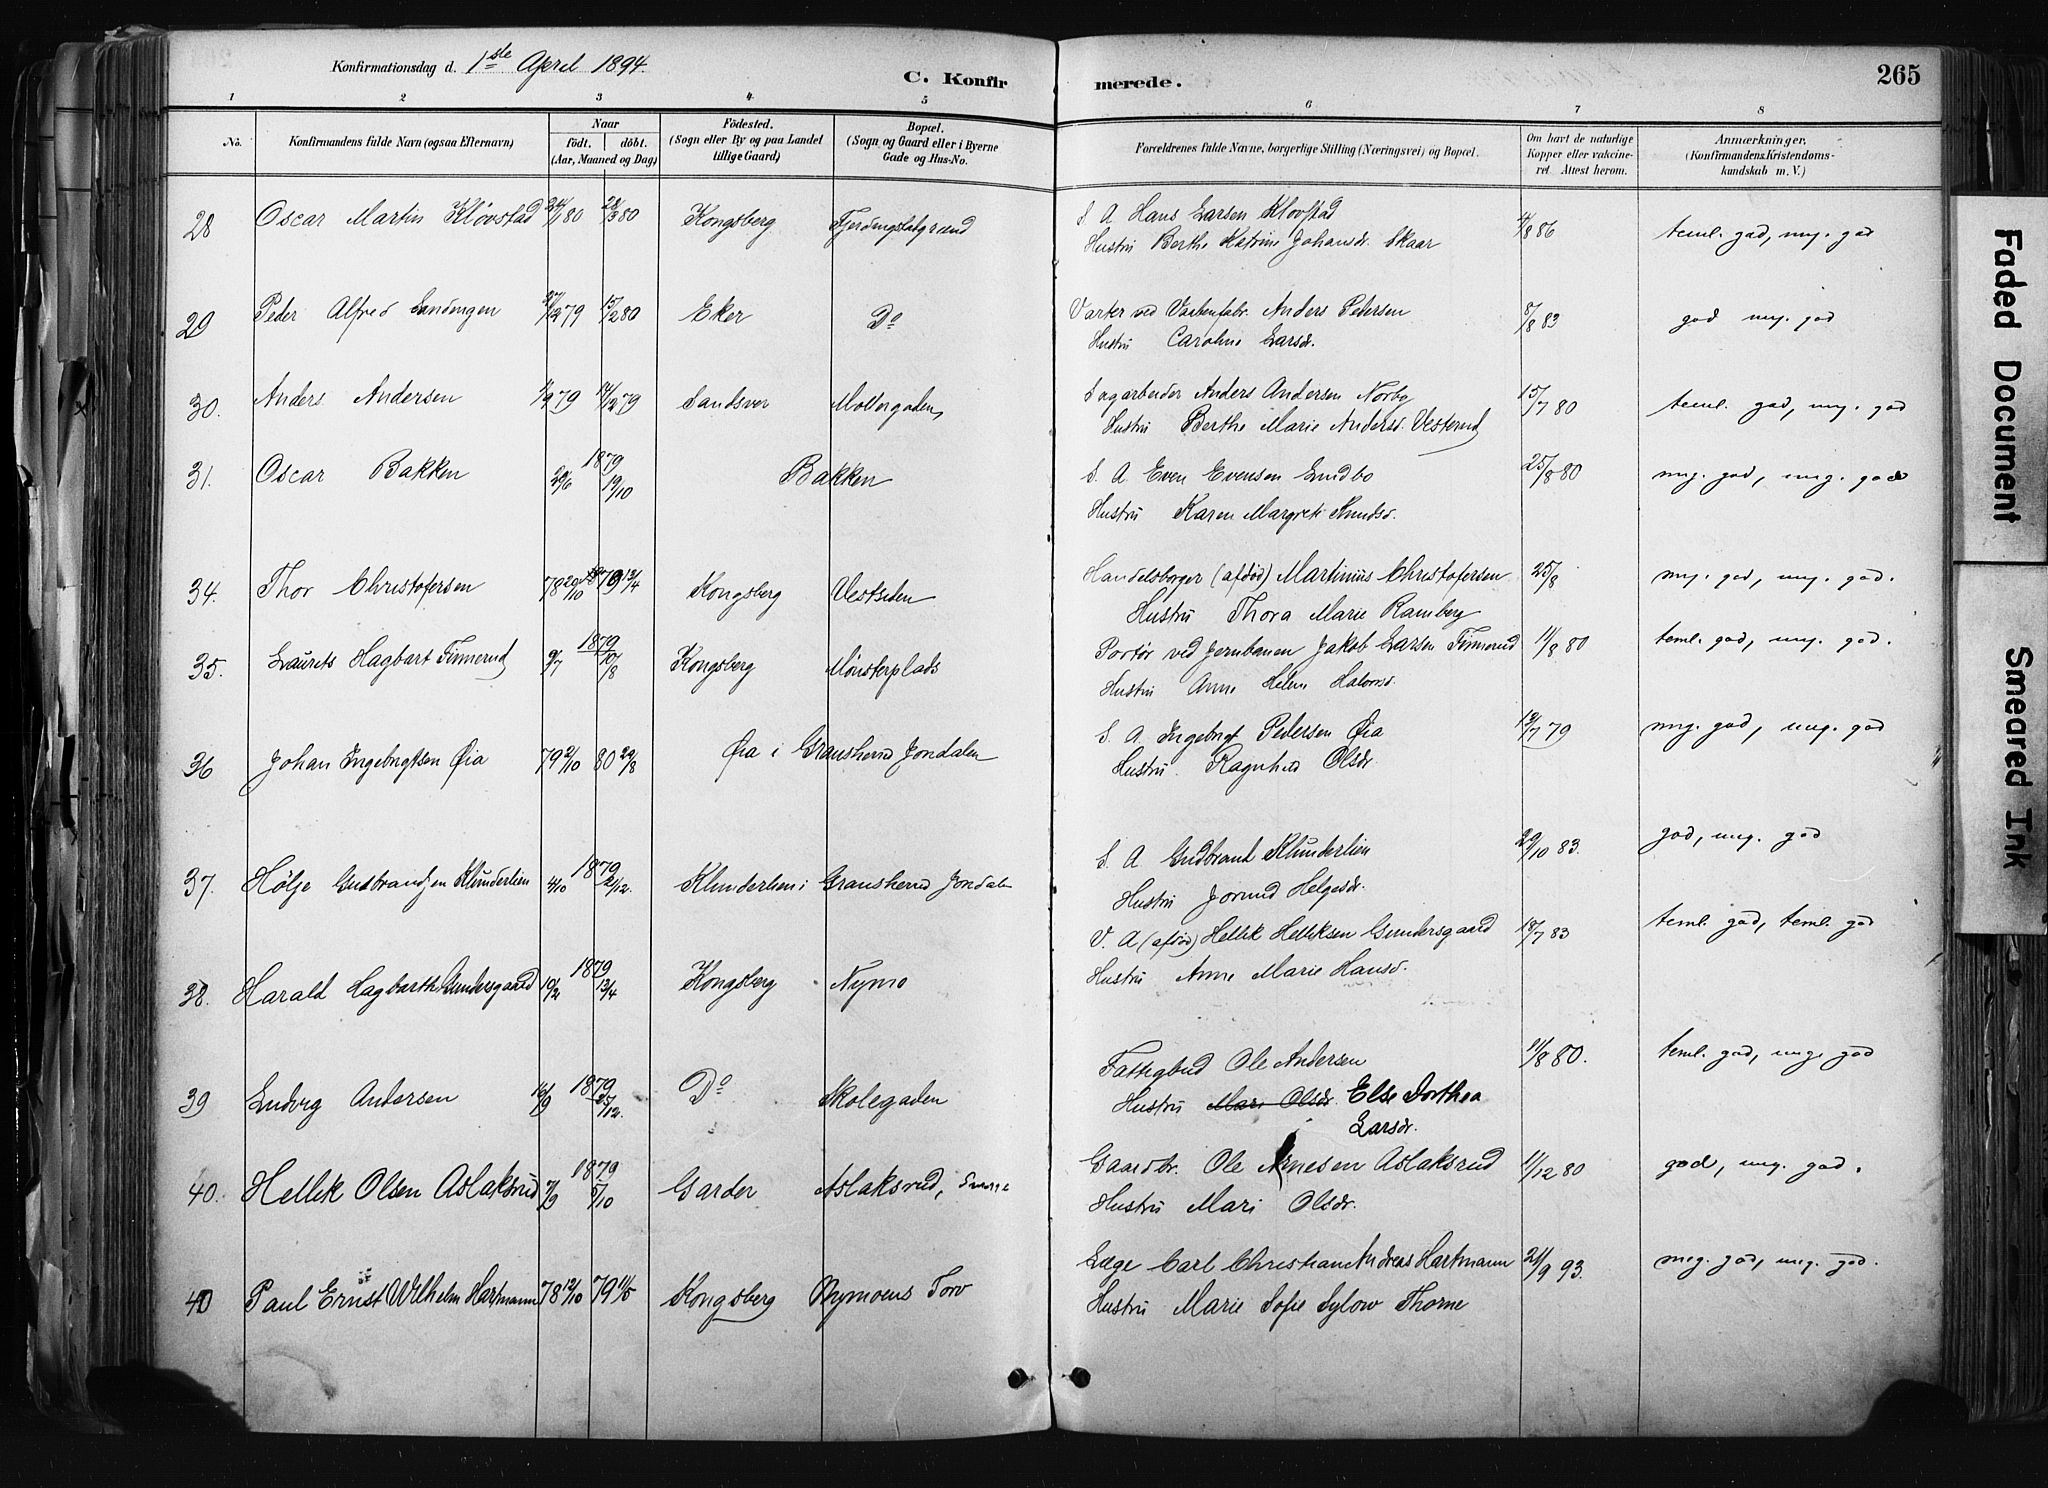 Konfirmationsdag d. 1ste April 1894.
C. Konfir
merede.
265
1 2 3 4 5 6 7 8
No. Konfirmandens fulde Navn (ogsaa Efternavn) Naar födt. döbt. (Aar, Maaned og Dag) Födested. (Sogn eller By og paa Landet tillige Gaard) Bopæl. (Sogn og Gaard eller i Byerne Gade og Hus-No.
Forældrenes fulde Navne, borgerlige Stilling (Næringsvei) og Bopæl. Om havt de naturlige Kopper eller vakcineret. Attest herom. Anmærkninger. (Konfirmandens Kristendomskundskab m. V.)
28 Oscar Martin Kløvstad 24/1 80 28/3 80 Kongsberg S. A. Hans Larsen Klovstad 4/8 86 teml. god, mg. god
Hustru Berthe Katrine Johansdr. Skaar
29 Peder Alfred 12 79 15/2 80 Eker Do Anders Pedersen 8/8 83 god mg. god
Hustru Caroline Larsdr.
30. Anders Andersen 1/9 79 14/12 79 Sandsver Møllergaden Sagarbeider Anders Andersen Norby 15/7 80 teml. god, mg. god
Hustru Berthe Marie Andersd. Vesterud
31. Oscar Bakken 1879 29/6 19/10 Bakken S. A. Even Evensen Lundbo 25/8 80 mg. god, mg. god
Hustru Karen Margrete Knudsd.
34. Thor Christofersen 78 29/10 79 13/4 Kongsberg Vestsiden Handelsborger (afdød) Martinius Christofersen 25/8 mg. god, mg. god.
Hustru Thora Marie Ramberg
35. Laurits Hagbart Finnerud 9/7 1879 10/8 Kongsberg Mönsterplads Portör ved Jernbanen Jakob Larsen Finnerud 11/8 80 teml. god, mg. god.
Hustru Anne Helene
36 Johan Ingebrigtsen Øia 79 2/10 80 22/8 Øia i Gransherred Jondalen S. A. Ingebrigt Pedersen Øia 12/7 79 mg. god, mg. god
Hustru Ragnhild Olsdr.
37. Hølje Gudbrandsen Klunderlien 4/10 1879 2/12. Klunderlien i Gransherred Jondalen S. A. Gudbrand Klunderlien 29/10 83. god, mg. god
Hustru Jorund Helgesdr.
38. Harald Hagbarth Gundersgaard 10/2 1879 13/4 Kongsberg Nymo V. A. (afdød) Hellik Helliksen Gundersgaard 18/7 83 teml. god, teml. god
Hustru Anne Marie Hansd.
39 Ludvig Andersen 16/9 1879 25/12. Do Skolegaden Fattigbud Ole Andersen 11/8 80. teml. god, mg. god
Hustru Mari Olsdr. Else Dorthea
Larsdr.
40. Hellik Olsen Aslaksrud 7/9 1879 5/10 Garder Aslaksrud, Gaardbr. Ole Arnesen Aslaksrud 11/12 80 god, mg. god.
Hustru Mari Olsdr.
40 Paul Ernst Wilhelm Hartmann 78 12/10 79 11/5 Kongsberg Nymoens Torv Læge Carl Christian Andreas Hartmann 21/9 93. meg. god, meg. god.
Hustru Marie Sofie Sylow Thorne
Faded Document
Smeared Ink